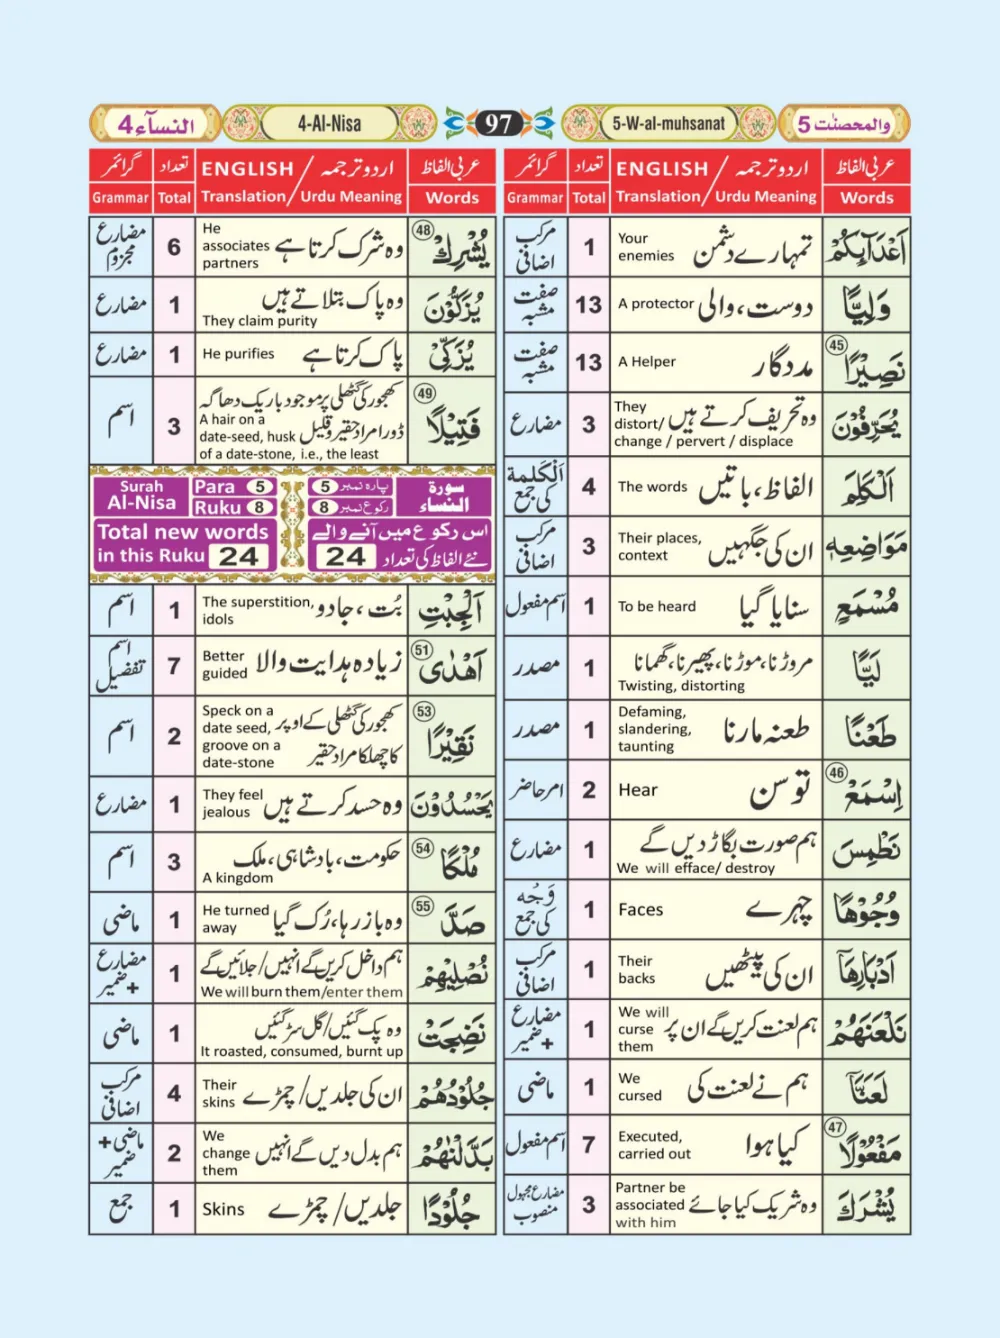 النسآء4
4-Al-Nisa
97
5-W-al-muhsanat
والمحصنٰت 5
عربی الفاظ
ENGLISH / اردو ترجمہ
تعداد
گرائمر
Words
Translation/ Urdu Meaning
Total
Grammar
اَعْدَآىِٕكُمْ
تمہارے دشمن
Your
enemies
1
مرکب
اضافی
وَلِيًّا
دوست، والی
A protector
13
صفت
مشبہ
نَصِيْرًا
45
مددگار
A Helper
13
صفت
مشبہ
يُحَرِّفُوْنَ
وہ تحریف کرتے ہیں
They
distort/
change / pervert / displace
3
مضارع
اَلْكَلِمَ
الفاظ، باتیں
The words
4
اَلْكَلِمة
کی جمع
مَوَاضِعِهٖ
ان کی جگہیں
Their places,
context
3
مرکب
اضافی
مُسْمَعٍ
سنایا گیا
To be heard
1
اسم مفعول
لَيًّا
مروڑنا، موڑنا، پھیرنا، گھمانا
Twisting, distorting
1
مصدر
طَعْنًا
طعنہ مارنا
Defaming,
slandering,
taunting
1
مصدر
اِسْمَعْ
46
تو سن
Hear
2
امر حاضر
نَطْمِسَ
ہم صورت بگاڑ دیں گے
We will efface/ destroy
1
مضارع
وُجُوْهًا
چہرے
Faces
1
وَجْه
کی جمع
اَدْبَارِهَا
ان کی پیٹھیں
Their
backs
1
مرکب
اضافی
نَلْعَنَهُمْ
ہم لعنت کریں گے ان پر
We will
curse
them
1
مضارع
+ ضمیر
لَعَنَّا
ہم نے لعنت کی
We
cursed
1
ماضی
مَفْعُوْلًا
47
کیا ہوا
Executed,
carried out
7
اسم مفعول
يُشْرَكَ
وہ شریک کیا جائے
Partner be
associated
with him
3
مضارع مجہول
منصوب
عربی الفاظ
ENGLISH / اردو ترجمہ
تعداد
گرائمر
Words
Translation/ Urdu Meaning
Total
Grammar
يُشْرِكْ
48
وہ شرک کرتا ہے
He
associates
partners
6
مضارع
مجزوم
يُزَكُّوْنَ
وہ پاک بتلاتے ہیں
They claim purity
1
مضارع
يُزَكِّيْ
پاک کرتا ہے
He purifies
1
مضارع
فَتِيْلًا
49
کھجور کی گٹھلی پر موجود باریک دھاگہ
ڈورا مراد حقیر و قلیل
A hair on a
date-seed, husk
of a date-stone, i.e., the least
3
اسم
Surah
Al-Nisa
Para 5
Ruku 8
پارہ نمبر 5
رکوع نمبر 8
سورة
النساء
Total new words
in this Ruku 24
اس رکوع میں آنے والے
نئے الفاظ کی تعداد 24
اَلْجِبْتِ
بُت، جادو
The superstition,
idols
1
اسم
اَهْدٰى
51
زیادہ ہدایت والا
Better
guided
7
اسم
تفضیل
نَقِيْرًا
53
کھجور کی گٹھلی کے اوپر
کا چھلکا مراد حقیر
Speck on a
date seed,
groove on a
date-stone
2
اسم
يَحْسُدُوْنَ
وہ حسد کرتے ہیں
They feel
jealous
1
مضارع
مُلْكًا
54
حکومت، بادشاہی، ملک
A kingdom
3
اسم
صَدَّ
55
وہ باز رہا، رُک گیا
He turned
away
1
ماضی
نُصْلِيْهِمْ
ہم داخل کریں گے انہیں/جلائیں گے
We will burn them/enter them
1
مضارع
+ ضمیر
نَضِجَتْ
وہ پک گئیں/گل سڑ گئیں
It roasted, consumed, burnt up
1
ماضی
جُلُوْدُهُمْ
ان کی جلدیں/ چمڑے
Their
skins
4
مرکب
اضافی
بَدَّلْنٰهُمْ
ہم بدل دیں گے انہیں
We
change
them
2
ماضی +
ضمیر
جُلُوْدًا
جلدیں/ چمڑے
Skins
1
جمع